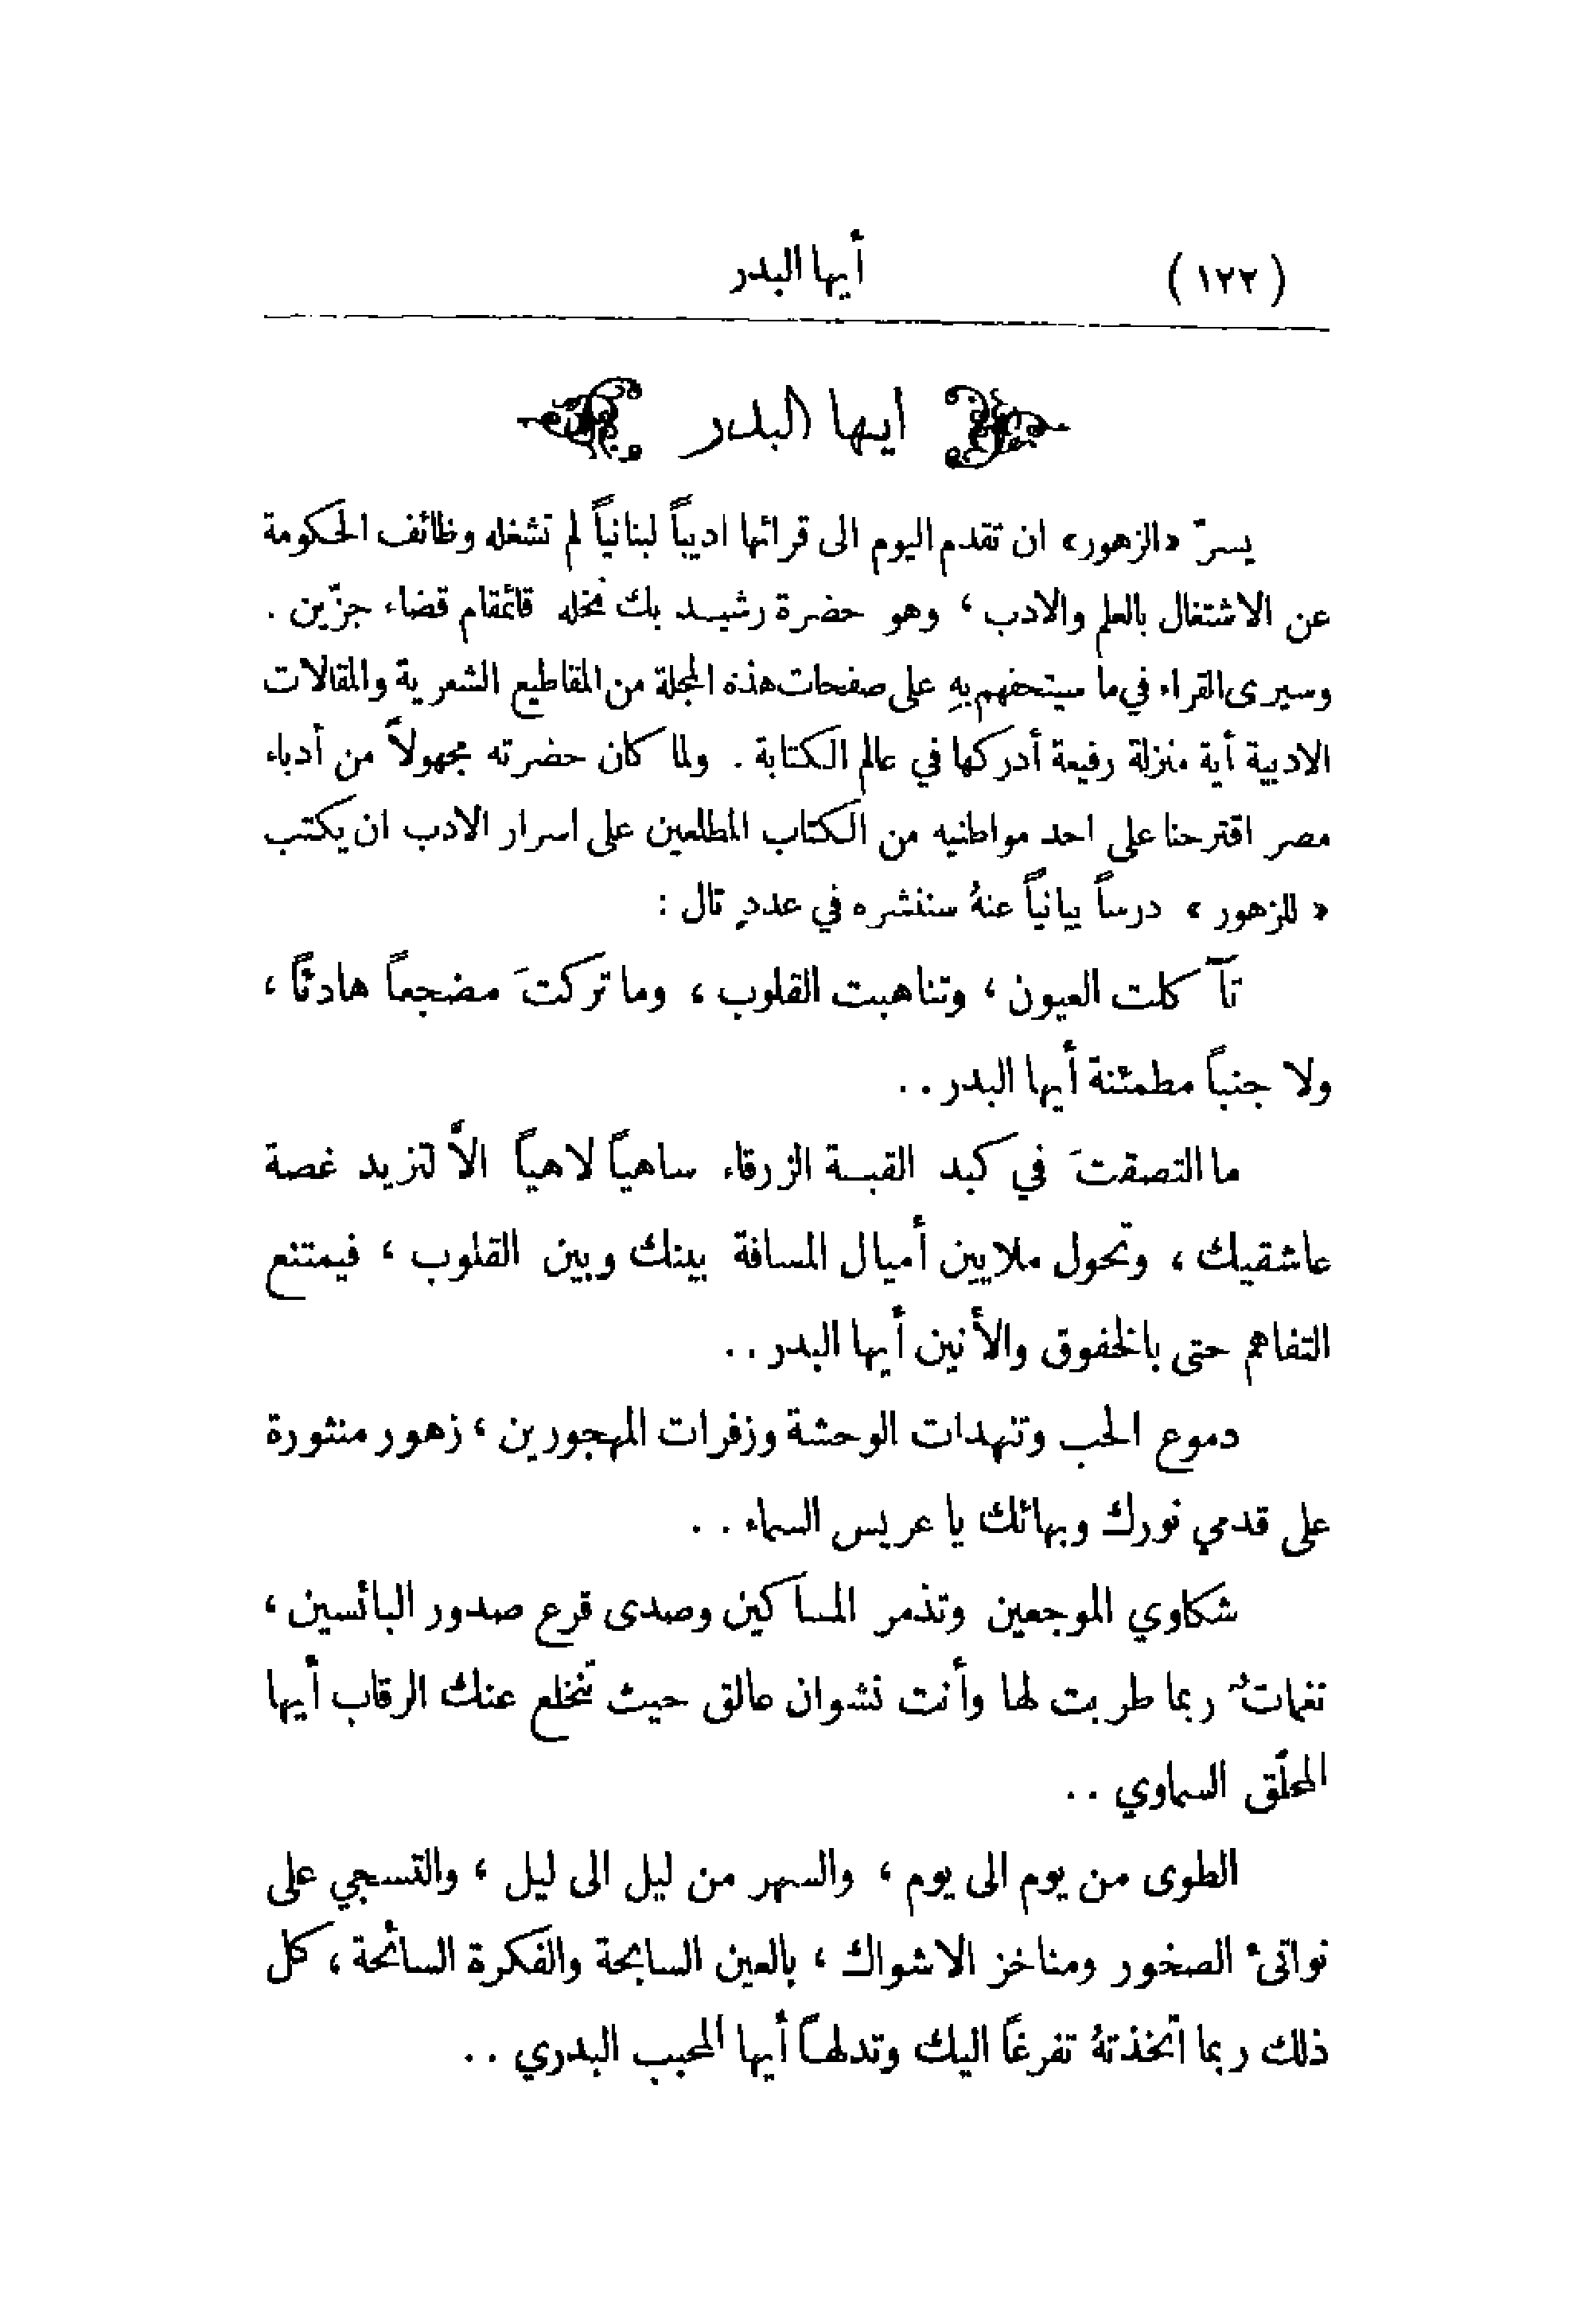 (١٢٢) أيها البدر
ايها البدر
يسرّ «الزهور» ان تقدم اليوم الى قرائها اديباً لبنانياً لم تشغله وظائف الحكومة
عن الاشتغال بالعلم والادب ، وهو حضرة رشيد بك نخله قائمقام قضاء جزّين .
وسيرى القراء في ما سيتحفهم بهِ على صفحات هذه المجلة من المقاطيع الشعرية والمقالات
الادبية أية منزلة رفيعة أدركها في عالم الكتابة . ولما كان حضرته مجهولاً من أدباء
مصر اقترحنا على احد مواطنيه من الكتاب المطلعين على اسرار الادب ان يكتب
« للزهور » درساً بيانياً عنهُ سننشره في عددٍ تال :
تآكلت العيون ، وتناهبت القلوب ، وما تركتَ مضجعاً هادئاً ،
ولا جنباً مطمئنة أيها البدر . .
ما التصقتَ في كبد القبة الزرقاء ساهياً لاهياً الاَّ لتزيد غصة
عاشقيك ، وتحول ملايين أميال المسافة بينك وبين القلوب ، فيمتنع
التفاهم حتى بالخفوق والأنين أيها البدر . .
دموع الحب وتنهدات الوحشة وزفرات المهجورين ، زهور منثورة
على قدمي نورك وبهائك يا عريس السماء . .
شكاوي الموجعين وتذمر المساكين وصدى قرع صدور البائسين ،
نغماتٌ ربما طربت لها وأنت نشوان عالق حيث تنخلع عنك الرقاب أيها
المحلّق السماوي . .
الطوى من يوم الى يوم ، والسهر من ليل الى ليل ، والتسجي على
نواتئ الصخور ومناخز الاشواك ، بالعين السابحة والفكرة السائحة ، كل
ذلك ربما اتخذتهُ تفرغاً اليك وتدلهاً أيها المحبب البدري . .